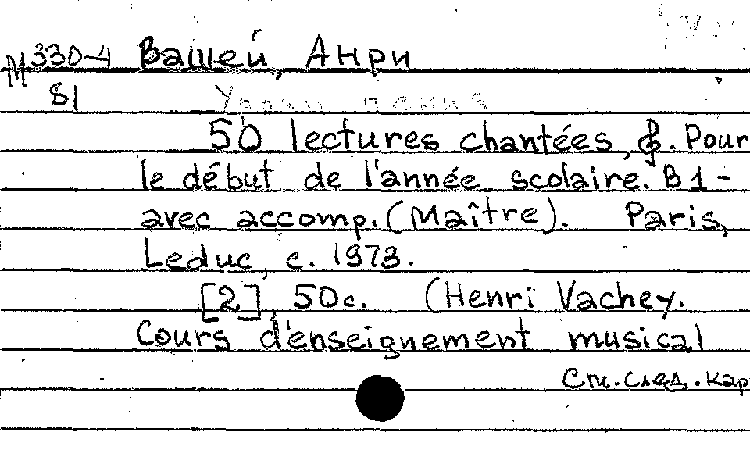 М 330-4 Вашей, Анри
81
50 lectures chantées, 𝄞. Pour
le début de l'année scolaire. B1-
avec accomp. (Maître). Paris,
Leduc, c. 1973.
[2], 50 с. (Henri Vachey.
Cours d'enseignement musical
См. след. кар